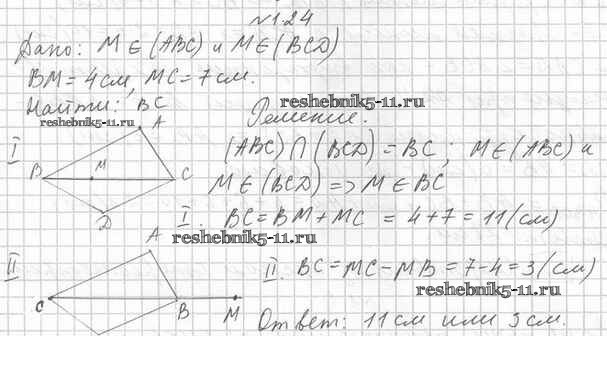 №1.24
Дано: M ∈ (ABC) и M ∈ (BCD)
BM = 4 см, MC = 7 см.
Найти: BC
reshebnik5-11.ru
Решение.
reshebnik5-11.ru
I
A
B
M
C
D
(ABC) ∩ (BCD) = BC ; M ∈ (ABC) и
M ∈ (BCD) => M ∈ BC
I. BC = BM + MC = 4 + 7 = 11 (см)
reshebnik5-11.ru
II
A
C
B
M
II. BC = MC - MB = 7 - 4 = 3 (см)
reshebnik5-11.ru
Ответ: 11 см или 3 см.